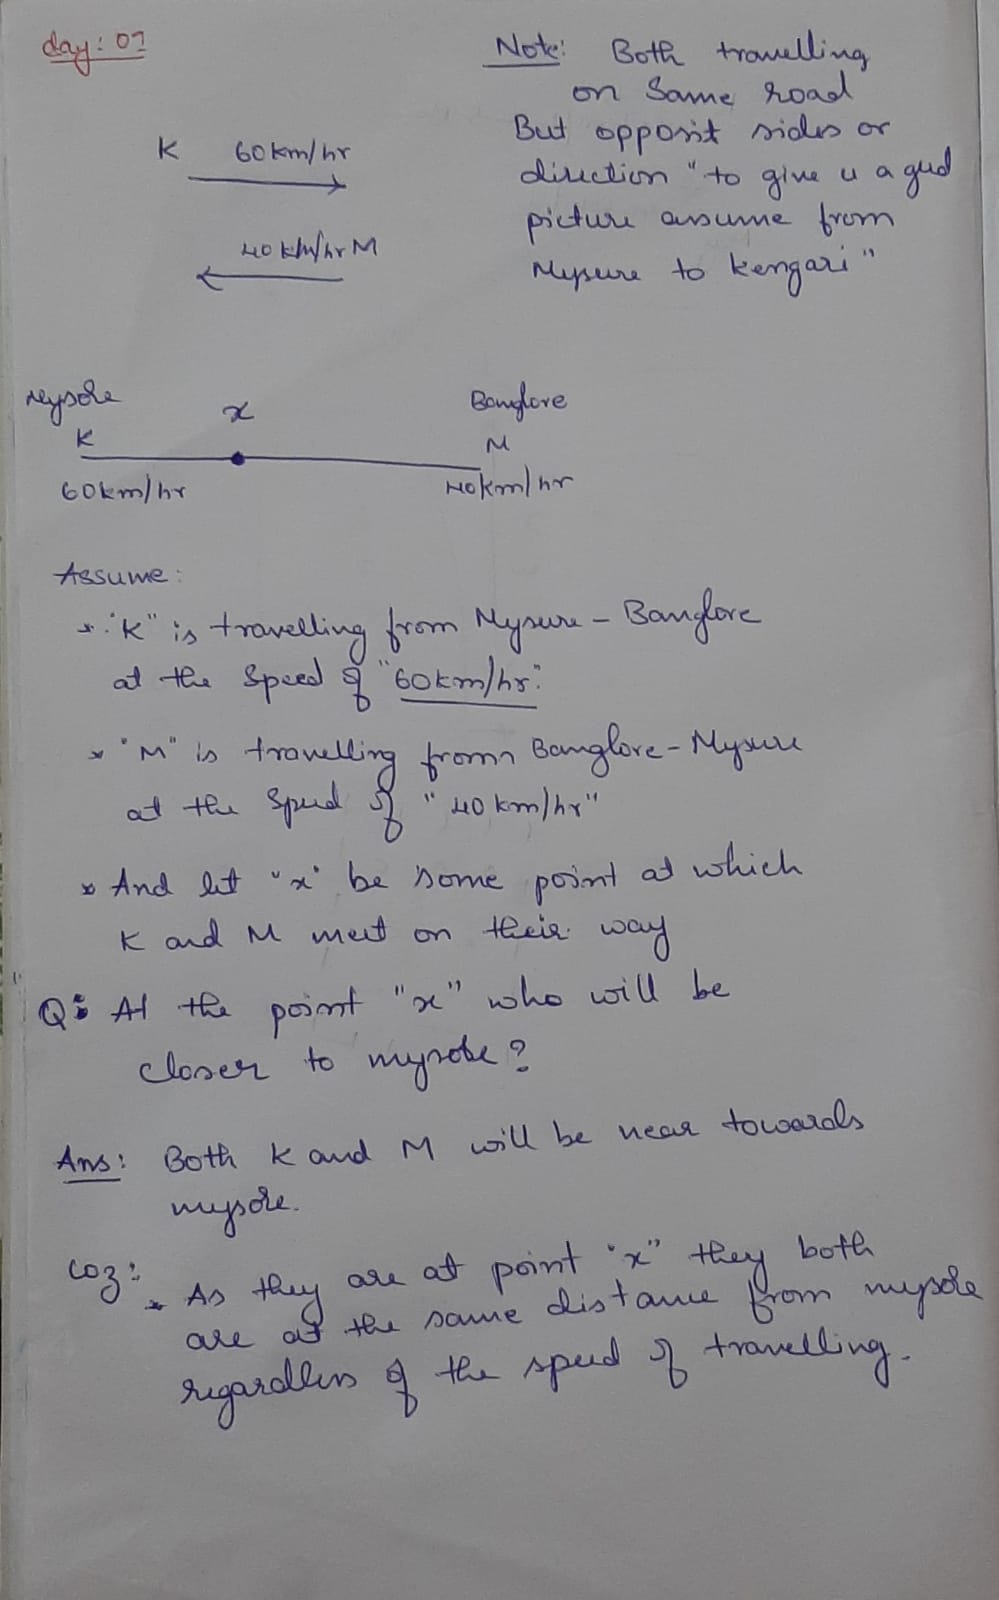 day: 07
Note: Both travelling
on Same road
But opposit sides or
direction "to give u a gud
picture assume from
Mysure to Kengari"
K 60km/hr
40 km/hr M
Mysore x Banglore
K M
60km/hr 40km/hr
Assume:
* "K" is travelling from Mysure - Banglore
at the Speed of "60km/hr".
* "M" is travelling from Banglore - Mysure
at the Speed of "40 km/hr"
* And let "x" be some point at which
K and M meet on their way
Q: At the point "x" who will be
closer to mysore?
Ans: Both K and M will be near towards
mysore.
coz: * As they are at point "x" they both
are at the same distance from mysore
regardless of the speed of travelling.